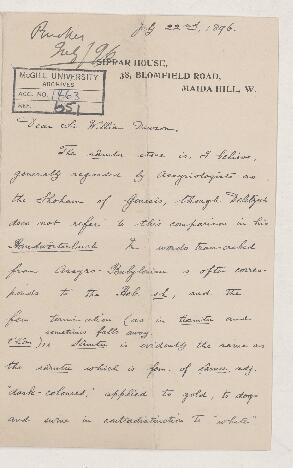 July 22nd, 1896.
Pinches
July /96
SIPPAR HOUSE,
38, BLOMFIELD ROAD,
MAIDA HILL, W.
McGILL UNIVERSITY
ARCHIVES
ACC. NO. 1463
REF.
Dear Sir William Dawson,
The sâmdu stone is, I believe,
generally regarded by Assyriologists as
the Shoham of Genesis, though Delitzsch
does not refer to this comparison in his
Handwörterbuch. In words transcribed
from Assyro-Babylonian s often corres-
ponds to the Heb. sh, and the
fem. termination (as in tiamtu and
sometimes falls away.
is evidently the same as
the sâmtu which is fem. of sâmu, adj.
"dark-coloured," applied to gold, to dogs
and swine in contradistinction to "white"